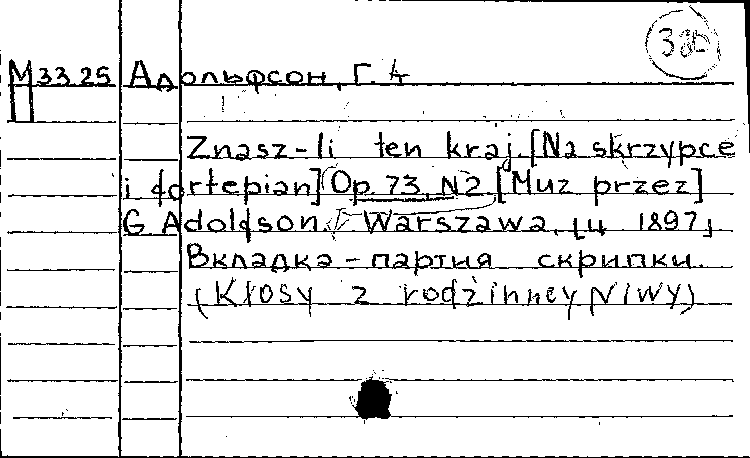 М 33.25 Адольфсон, Г.
Znasz-li ten kraj. [Na skrzypce
i fortepian] Op. 73, N2 [Muz przez]
G Adolfson. Warszawa, [ц 1897]
Вкладка - партия скрипки.
(Kłosy z rodzinney Niwy)